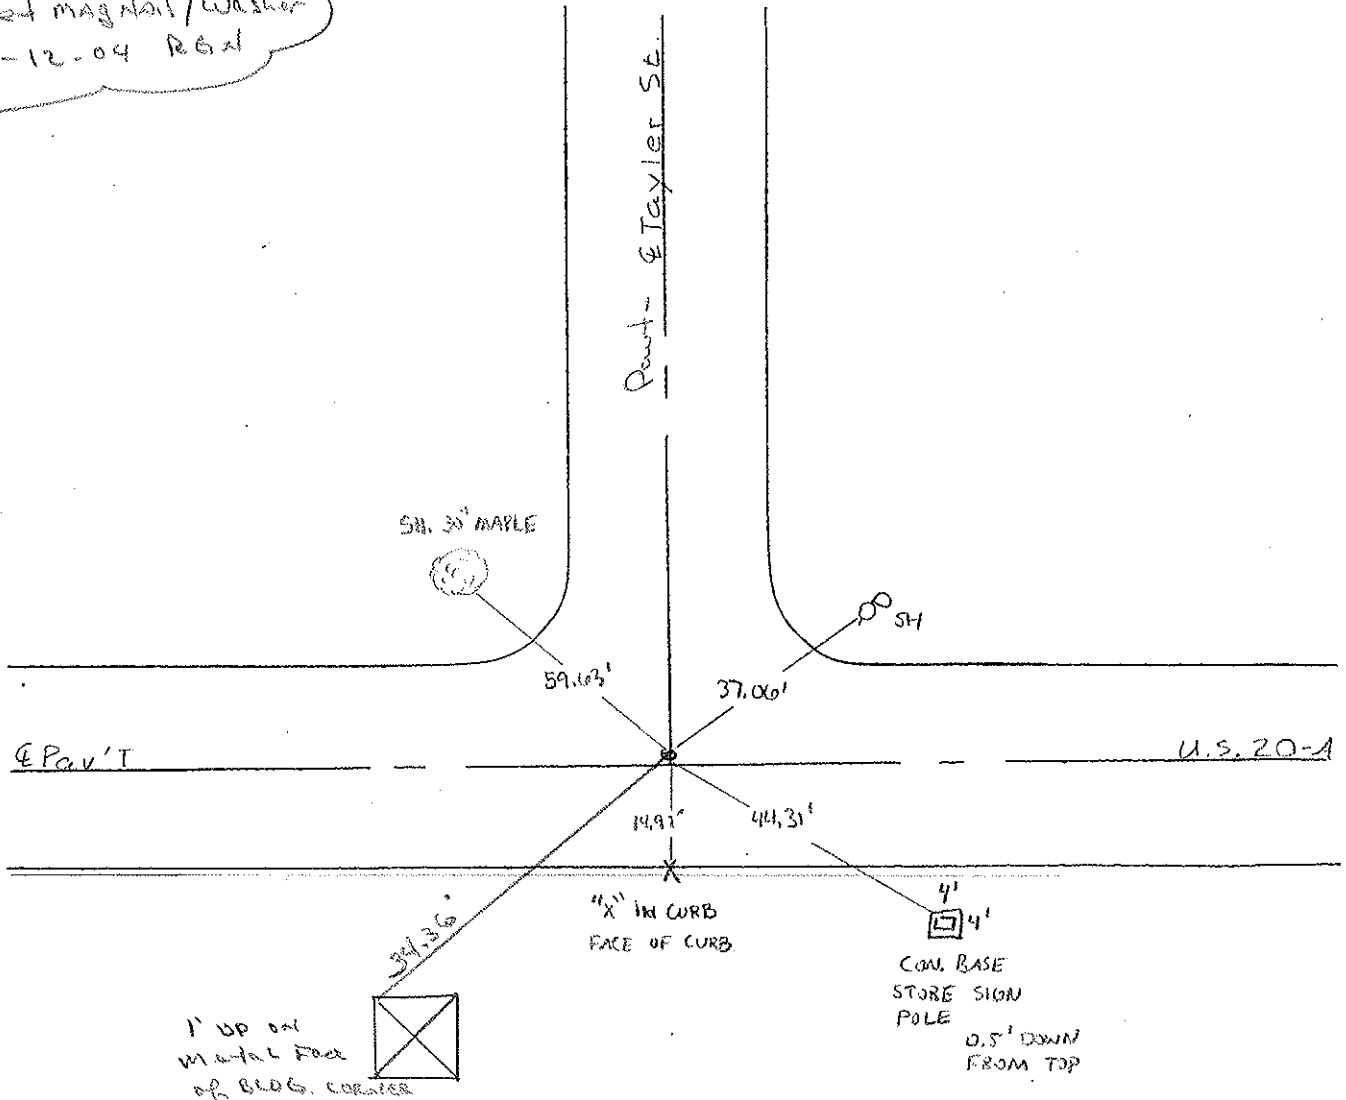 MAGNAIL/WASHER
-12-04 RGN
Pavt- ℄ Tayler St.
SH. 30" MAPLE
SH
59.63'
37.06'
℄ Pav'T
U.S. 20-A
14.97'
44.31'
34.36'
"X" IN CURB
FACE OF CURB
4'
4'
CON. BASE
STORE SIGN
POLE
0.5' DOWN
FROM TOP
1' UP ON
Metal Face
of BLDG. CORNER